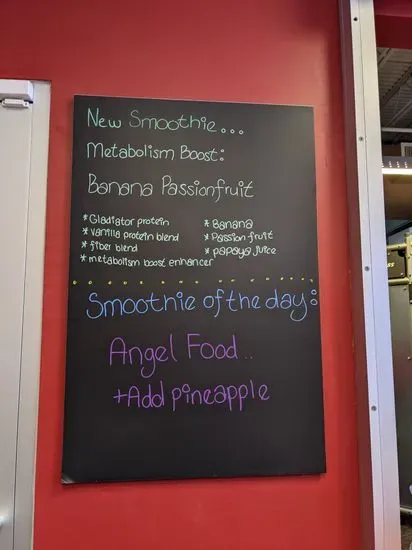 New Smoothie...
Metabolism Boost:
Banana Passionfruit
*Gladiator protein
*vanilla protein blend
*fiber blend
*metabolism boost enhancer
*Banana
*Passion fruit
*papaya juice
Smoothie of the day:
Angel Food..
+Add pineapple